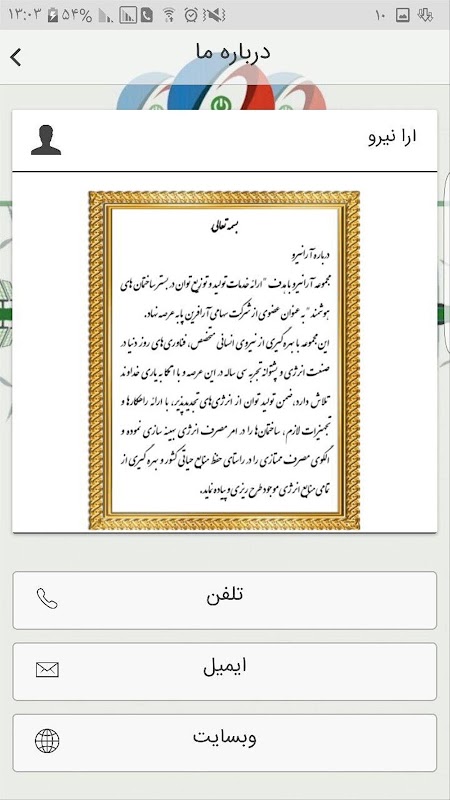 ۱۳:۰۳ ۵۴% ۱۰
درباره ما
ارا نیرو
بسمه تعالی
درباره آرانیرو
مجموعه آرانیرو با هدف "ارائه خدمات تولید و توزیع توان در بستر ساختمان های
هوشمند" به عنوان عضوی از شرکت سهامی آرآفرین پا به عرصه نهاد.
این مجموعه با بهره گیری از نیروی انسانی متخصص، فناوری های روز دنیا در
صنعت انرژی و پشتوانه تجربه سی ساله در این عرصه و با اتکا به یاری خداوند
تلاش دارد، ضمن تولید توان از انرژی های تجدیدپذیر، با ارائه راهکارها و
تجهیزات لازم، ساختمان ها را در امر مصرف انرژی بهینه سازی نموده و
الگوی مصرف ممتازی را در راستای حفظ منابع حیاتی کشور و بهره گیری از
تمامی منابع انرژی موجود طرح ریزی و پیاده نماید.
تلفن
ایمیل
وبسایت